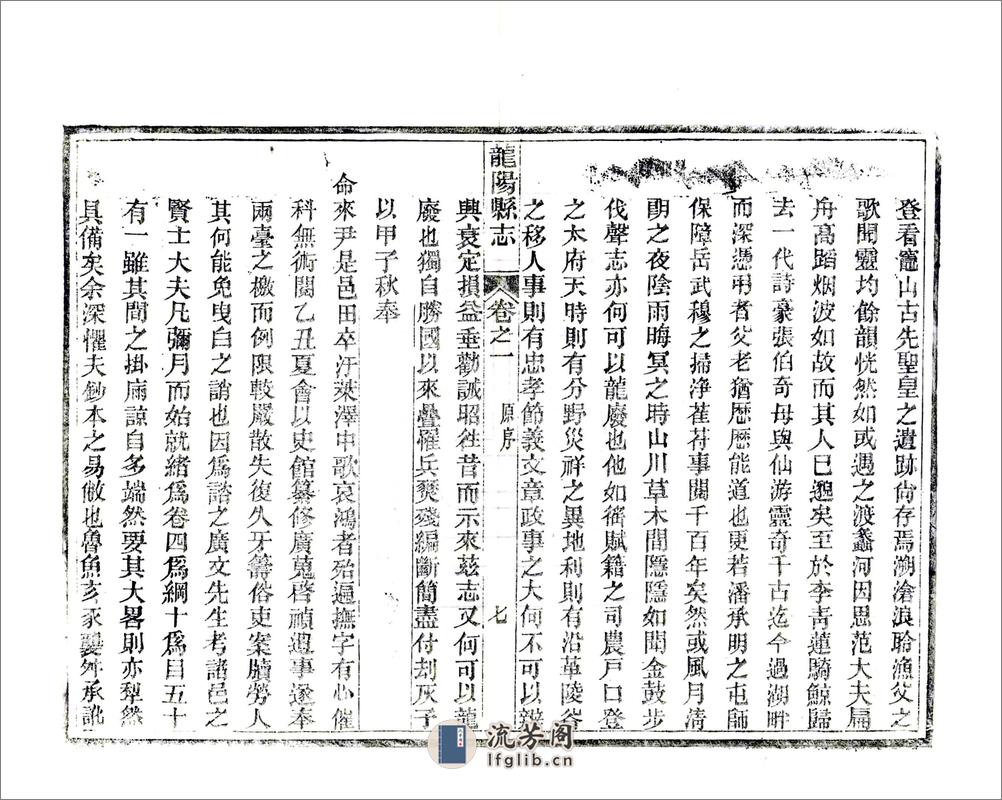 登看寵山古先聖皇之遺跡尙存焉溯滄浪聆漁父之
歌聞靈均餘韻恍然如或遇之渡蠡河因思范大夫扁
舟高蹈烟波如故而其人已邈矣至於李靑蓮騎鯨歸
去一代詩豪張伯奇母與仙游靈奇千古迄今過湖畔
而深憑弔者父老猶歴歴能道也更若潘承明之屯師
保障岳武穆之掃淨萑苻事閱千百年矣然或風月淸
朗之夜陰雨晦冥之時山川草木間隱隱如聞金鼓步
伐聲志亦何可以龍廢也他如徭賦籍之司農戸口登
之太府天時則有分野災祥之異地利則有沿革陵谷
之移人事則有忠孝節義文章政事之大何不可以辨
龍陽縣志
卷之一
原序
七
興衰定損益垂勸誡昭往昔而示來兹志又何可以龍
廢也獨自勝國以來疊罹兵燹殘編斷簡盡付刼灰予
以甲子秋奉
命來尹是邑田卒汙萊澤中歌哀鴻者殆遍撫字有心催
科無術閱乙丑夏會以史館纂修廣蒐啓禎遺事遂奉
兩臺之檄而例限較嚴散失復久牙籌俗吏案牘勞人
其何能免曳白之誚也因爲諮之廣文先生考諸邑之
賢士大夫凡彌月而始就緒爲卷四爲綱十爲目五十
有一雖其間之掛漏諒自多端然要其大畧則亦犁然
具備矣余深懼夫鈔本之易倣也魯魚亥豕襲舛承訛
流芳阁
lfglib.cn